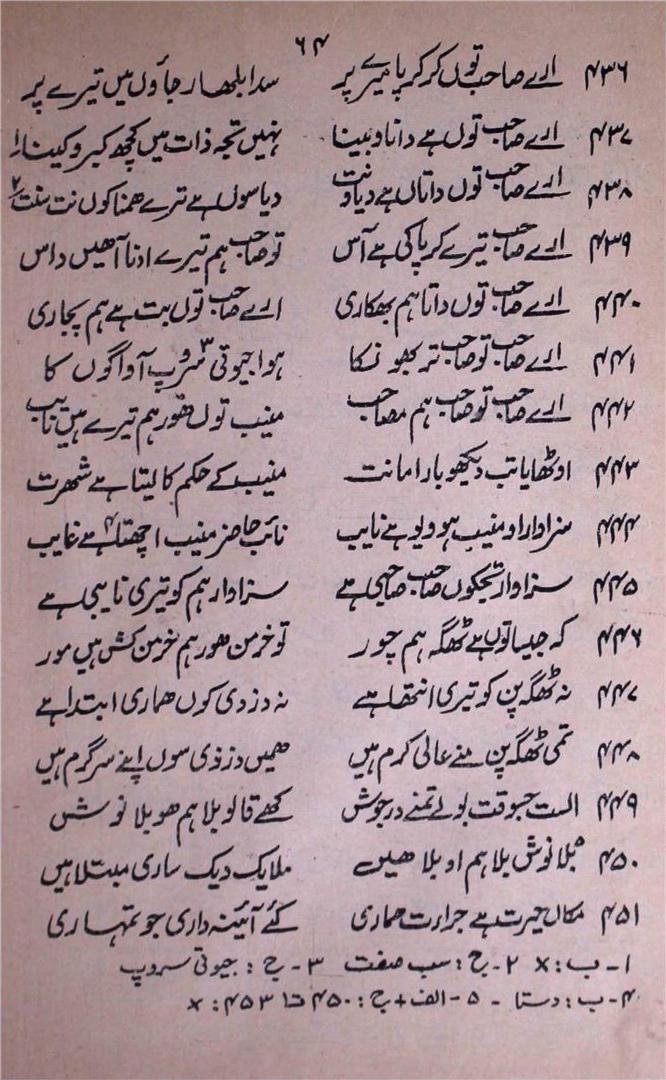 ۶۴
۴۳۶ ارے صاحب توں کر کرپا میرے پر سدا بلھار جاؤں میں تیرے پر
۴۳۷ ارے صاحب توں ہے دانا و بینا نہیں تجہ ذات میں کچھ کبر و کینا
۴۳۸ ارے صاحب توں داتاں ہے دیاونت دیا سوں ہے ترے ھمنا کوں نت
۴۳۹ ارے صاحب تیرے کرپا کی ہے آس تو صاحب ہم تیرے ادنا آھیں داس
۴۴۰ ارے صاحب توں داتا ہم بھکاری ارے صاحب توں بت ہے ہم پجاری
۴۴۱ ارے صاحب تو صاحب ہوا جیوتی سروپ۳ آواگوں کا
۴۴۲ ارے صاحب تو صاحب ہم مصاحب منیب توں ھور ہم تیرے ہیں نایب
۴۴۳ اوٹھایا تب دیکھو بار امانت منیب کے حکم کا لیتا ہے شھرت
۴۴۴ سزاوار او منیب ہو ویو ہے نایب نائب حاضر منیب ہے غایب
۴۴۵ سزاوار تجکوں صاحب صاحبی ہے سزاوار ہم کو تیری نایبی ہے
۴۴۶ کہ جیسا توں ہے ٹھگ ہم چور تو خرمن ھور ہم خرمن کش ہیں مور
۴۴۷ نہ ٹھگ پن کو تیری انتھا ہے نہ دزدی کوں ھماری ابتدا ہے
۴۴۸ تمی ٹھگ پن منے عالی کرم ہیں ھمیں دزدی سوں اپنے سرگرم ہیں
۴۴۹ الست جسوقت بولے تمنے در جوش کھے قالو بلا ہم ھو بلا نوش
۴۵۰ بلا نوش بلا ہم او بلا ھیں ملایک دیک ساری مبتلا ہیں
۴۵۱ مکاں حیرت ہے جرارت ھماری کئے آئینہ داری جو تمہاری
۱۔ ب : x ۲۔ ح : سب صفت ۳۔ ح : جیوتی سروپ
۴۔ ب : دستا ۔ ۵۔ الف + ح : ۴۵۰ تا ۴۵۳ : x